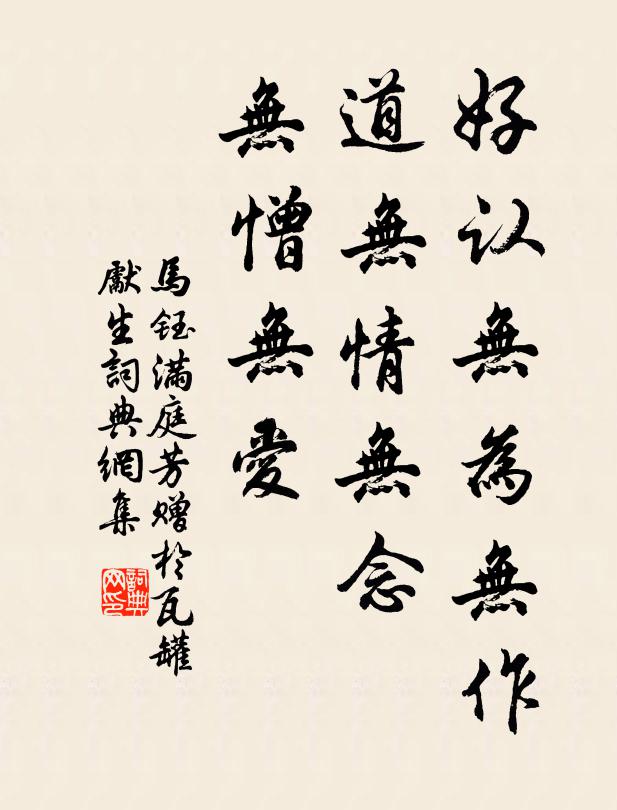 好认無為無作
道無情無念
無憎無愛
馬鈺满庭芳赠於瓦罐
獻生詞典網集
詞典
网印